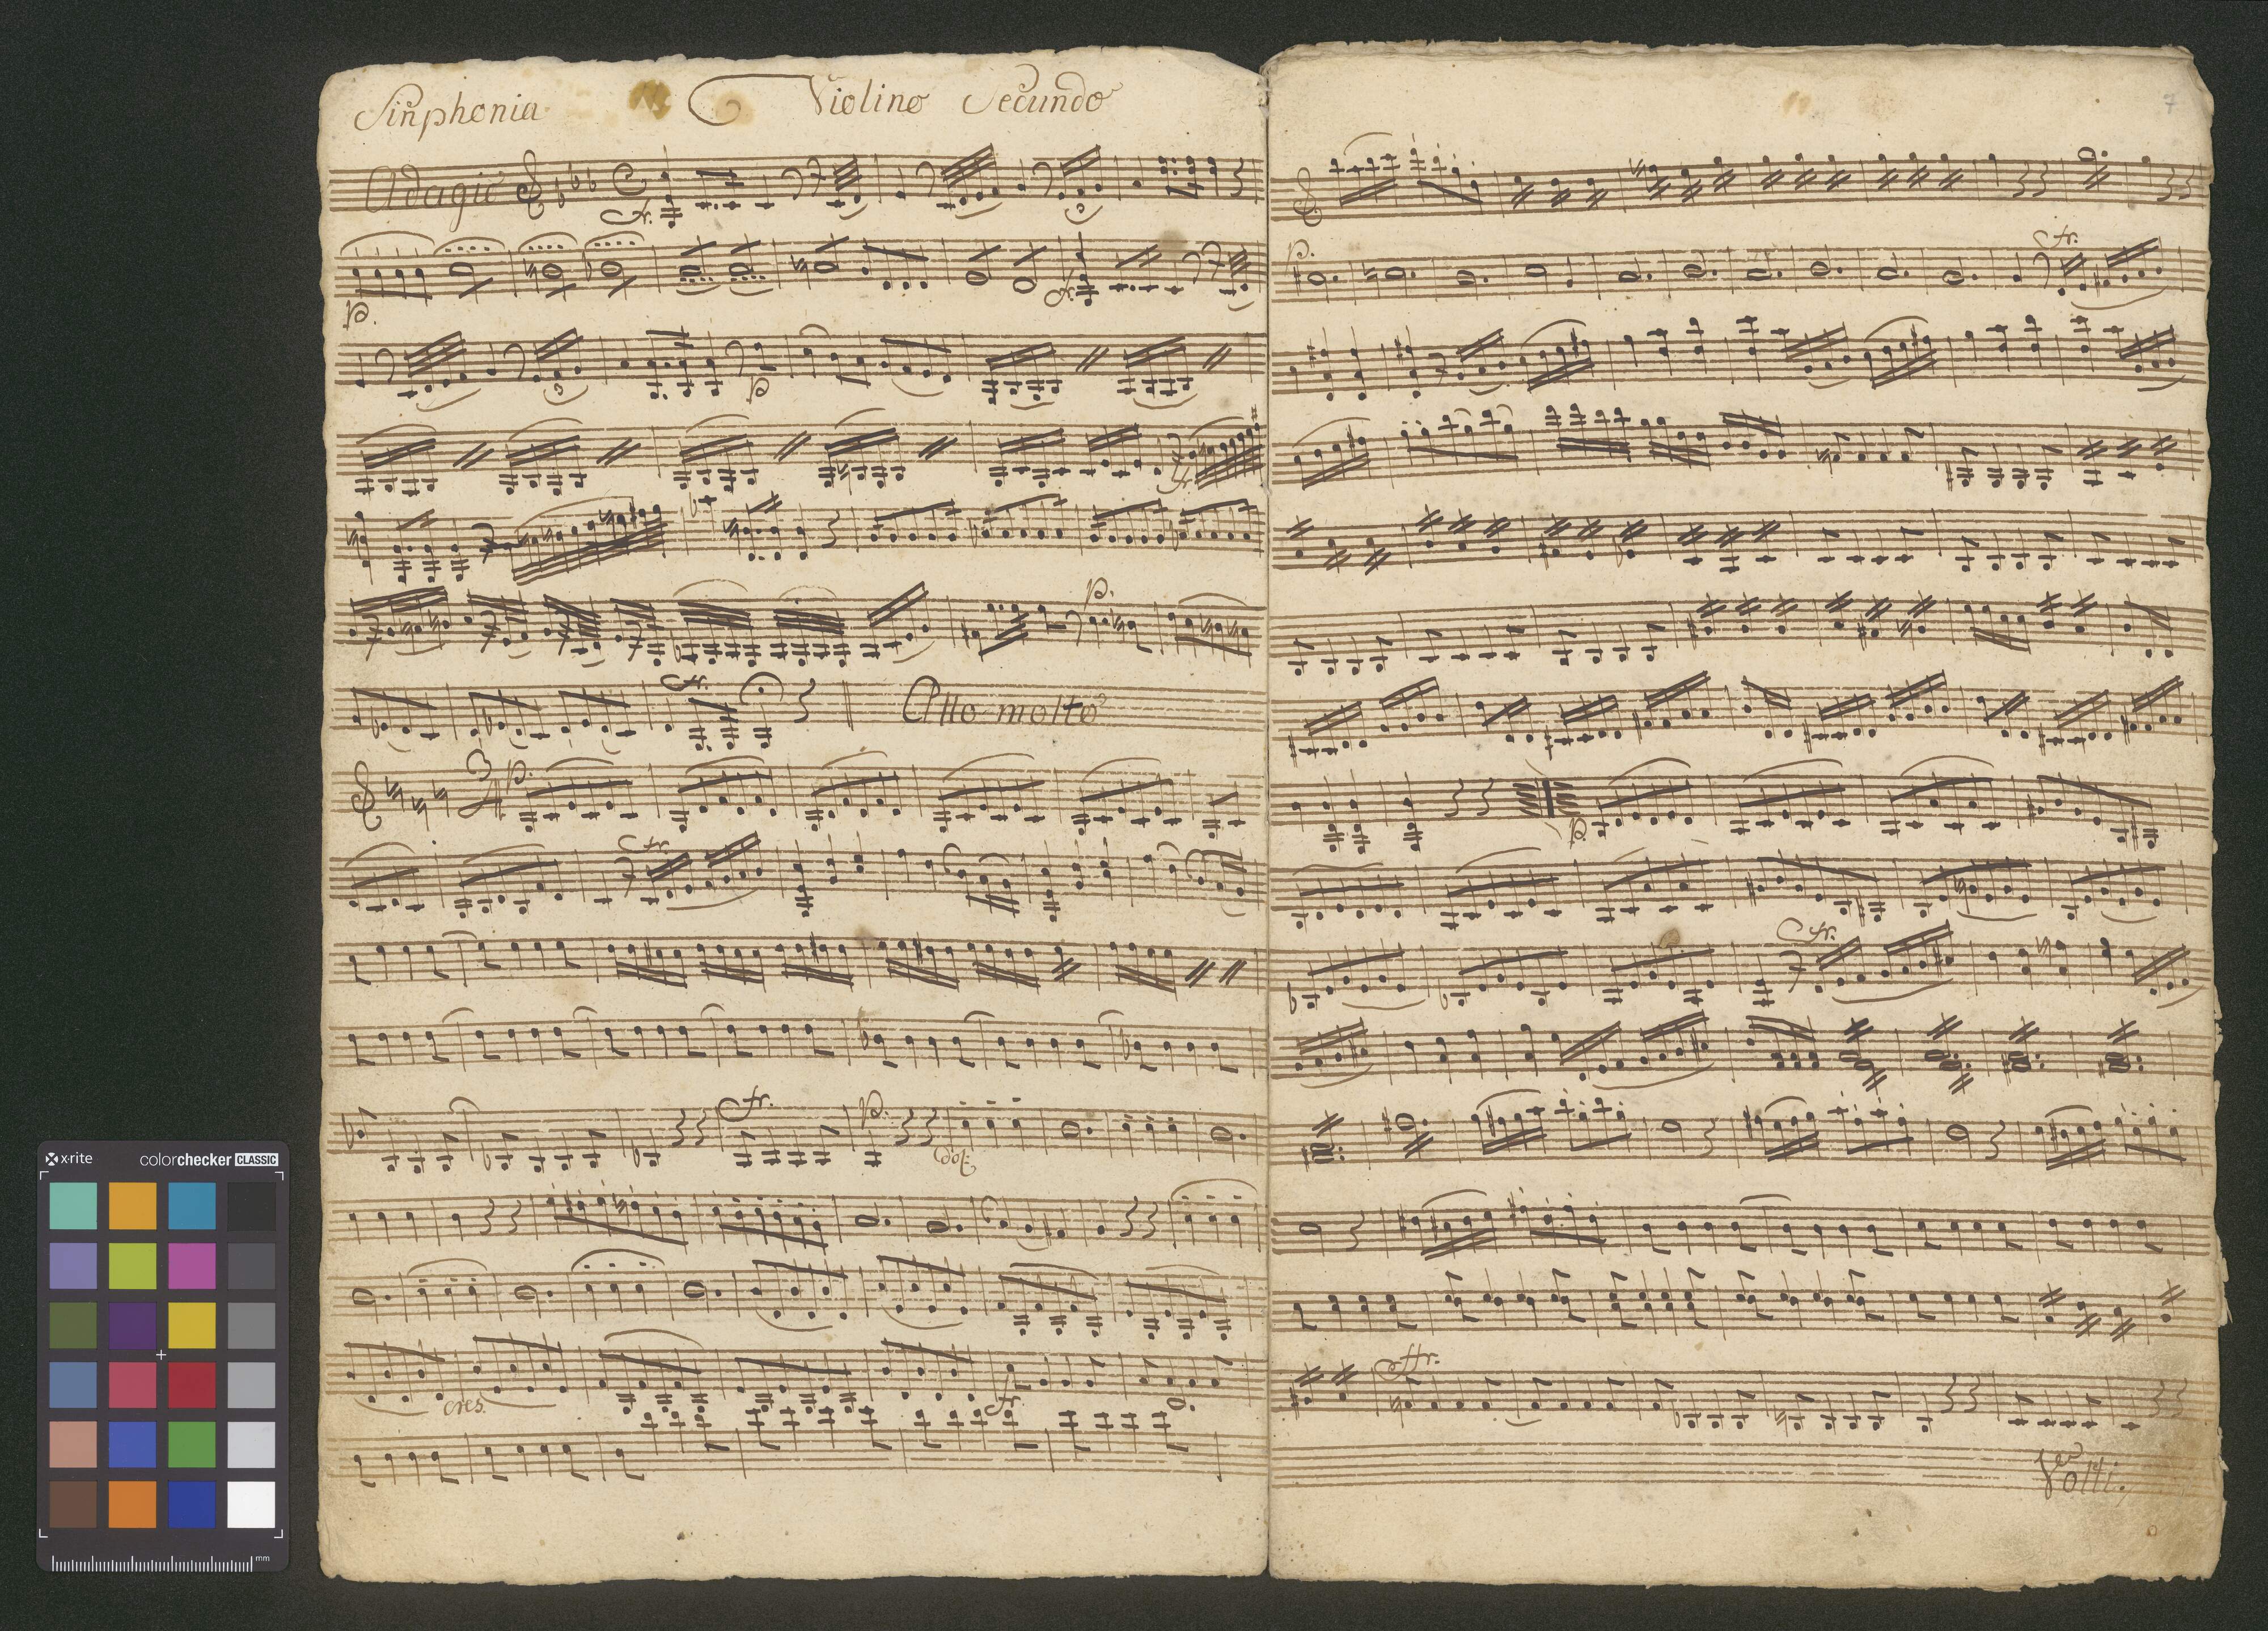 Sinphonia Violino Secundo
Adagio
fr.
3
p.
fr.
3
p
fr
p.
fr.
Allo molto
3
4
p.
fr.
fr.
p.
dol:
cres.
fr
7
p.
fr.
p.
fr.
ffr.
Volti
x-rite colorchecker CLASSIC
mm